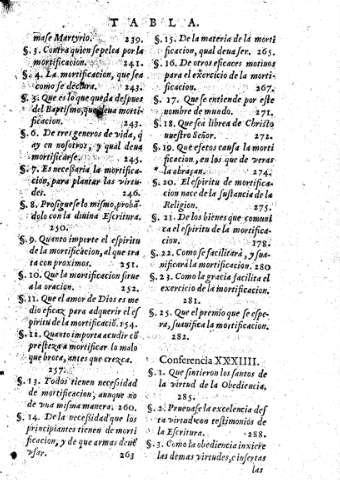 TABLA.
mase Martyrio. 239.
§. 5. Contra quien se pelea por la
mortificacion. 241.
§. 4. La mortificacion, que sea
como se declara. 243.
§. 5. Que es lo que queda despues
del Baptismo, que deua morti-
ficacion. 243.
§. 6. De tres generos de vida, q̃
ay en nosotros, y qual deua
mortificarse. 245.
§. 7. Es necessaria la mortifica-
cion, para plantar las virtu-
des. 246.
§. 8. Prosiguese lo mismo, probã-
dolo con la diuina Escritura.
250.
§. 9. Quanto importe el espiritu
de la mortificacion, al que tra-
ta con proximos. 251.
§. 10. Que la mortificacion sirue
a la oracion. 252.
§. 11. Que el amor de Dios es me
dio eficaz para adquerir el es-
piritu de la mortificaciõ. 254.
§. 12. Quanto importa acudir cõ
presteza a mortificar lo malo
que brota, antes que crezca.
257.
§. 13. Todos tienen necessidad
de mortificacion, aunque no
de vna misma manera. 260.
§. 14. De la necessidad que los
principiantes tienen de morti
ficacion, y de que armas deuẽ
vsar. 263
§. 15. De la materia de la morti
ficacion, qual deua ser. 265.
§. 16. De otros eficaces motiuos
para el exercicio de la morti-
ficacion. 267.
§. 17. Que se entiende por este
nombre de mundo. 271.
§. 18. Que sea librea de Christo
nuestro Señor. 272.
§. 19. Que efetos causa la morti
ficacion, en los que de veras
la abraçan. 274.
§. 20. El espiritu de mortifica-
cion nace de la sustancia de la
Religion. 275.
§. 21. De los bienes que comuni
ca el espiritu de la mortifica-
cion. 278.
§. 22. Como se facilitarà, y sua-
uificarà la mortificacion. 280
§. 23. Como la gracia facilita el
exercicio de la mortificacion.
281.
§. 25. Que el premio que se espe-
ra, suauifica la mortificacion.
282.
Conferencia XXXIIII.
§. 1. Que sintieron los santos de
la virtud de la Obediencia.
285.
§. 2. Prueuase la excelencia des
ta virtud con testimonios de
la Escritura. 288.
§. 3. Como la obediencia inxiere
las demas virtudes, e insertas
las